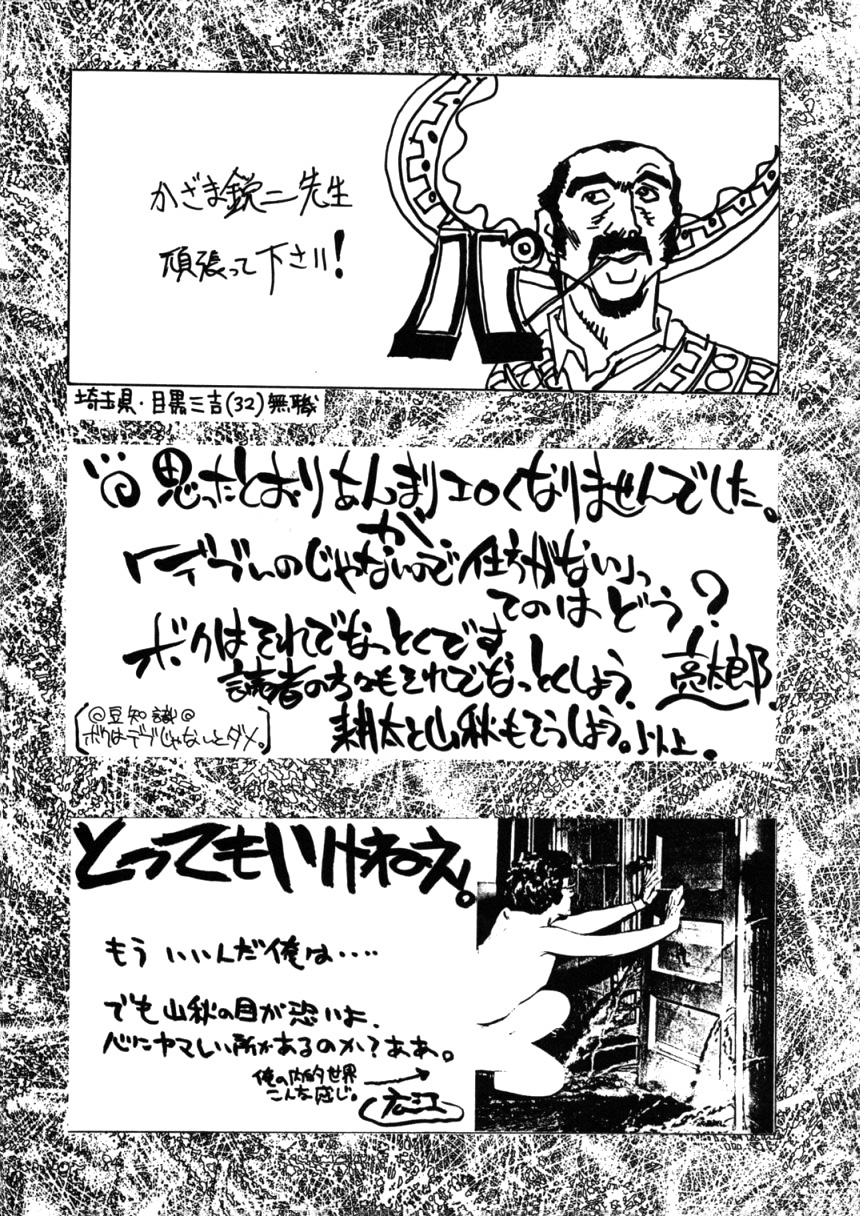 かざま鋭二先生
頑張って下さい!
埼玉県・目黒三吉(32)無職
思ったとおりあんまりエロくなりませんでした。
が
「デブいのじゃないので仕方がない」っ
てのはどう?
ボクはそれでなっとくです
読者の方々もそれでなっとくしよう。
亮太郎
耕太と山秋もそうしよう。以上。
◎豆知識◎
ボクはデブじゃないとダメ。
とってもいけねえ。
もういいんだ俺は・・・・
でも山秋の目が恐いよ、
心にヤマしい所があるのか?ああ。
俺の内的世界
こんな感じ。
広江